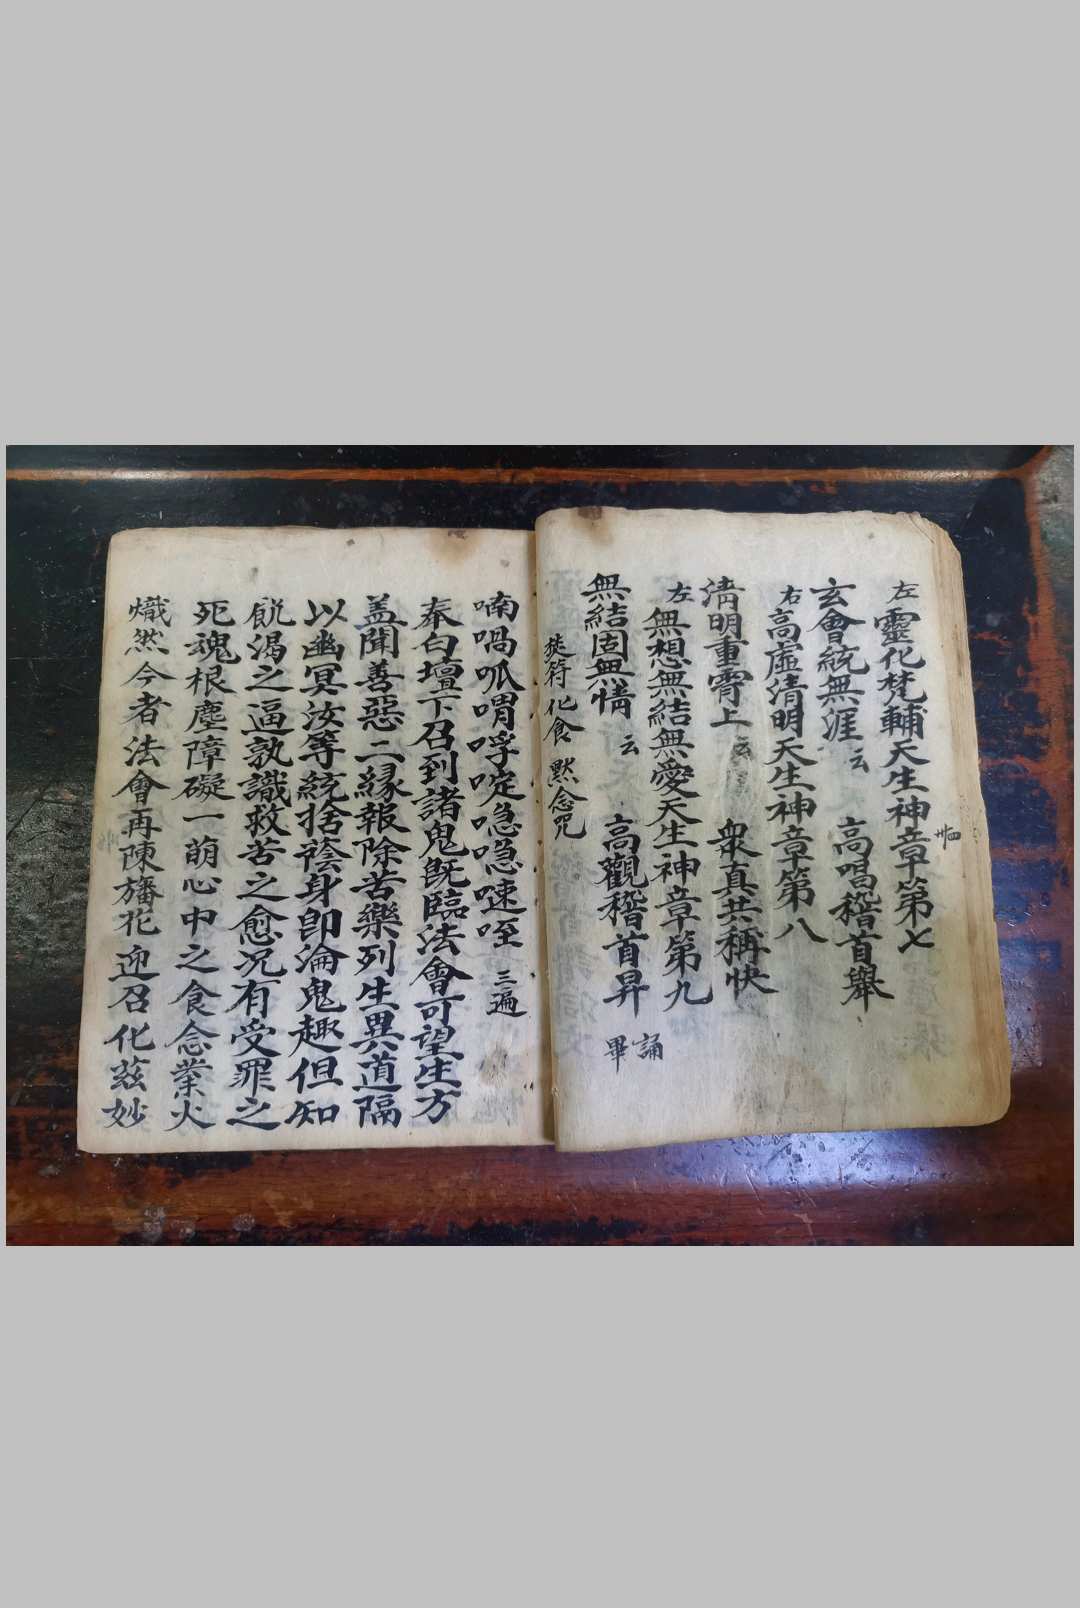 左 靈化梵輔天生神章第七
玄會統無涯 云 高唱稽首舉
右 高虛清明天生神章第八
清明重霄上 云 衆真共稱快
左 無想無結無愛天生神章第九
無結固無情 云 高觀稽首昇 誦畢
符 化食 默念咒
卌四
喃喎呱喟哹啶喼喼㖒咥 三遍
奉白壇下召到諸鬼旣臨法會可望生方
盖聞善惡二緣報除苦樂列生異道隔
以幽冥汝等統捨䕃身卽淪鬼趣但知
飢渴之逼孰識救苦之愈况有受罪之
死魂根塵障礙一萌心中之食念業火
熾然今者法會再陳旛花迎召化兹妙